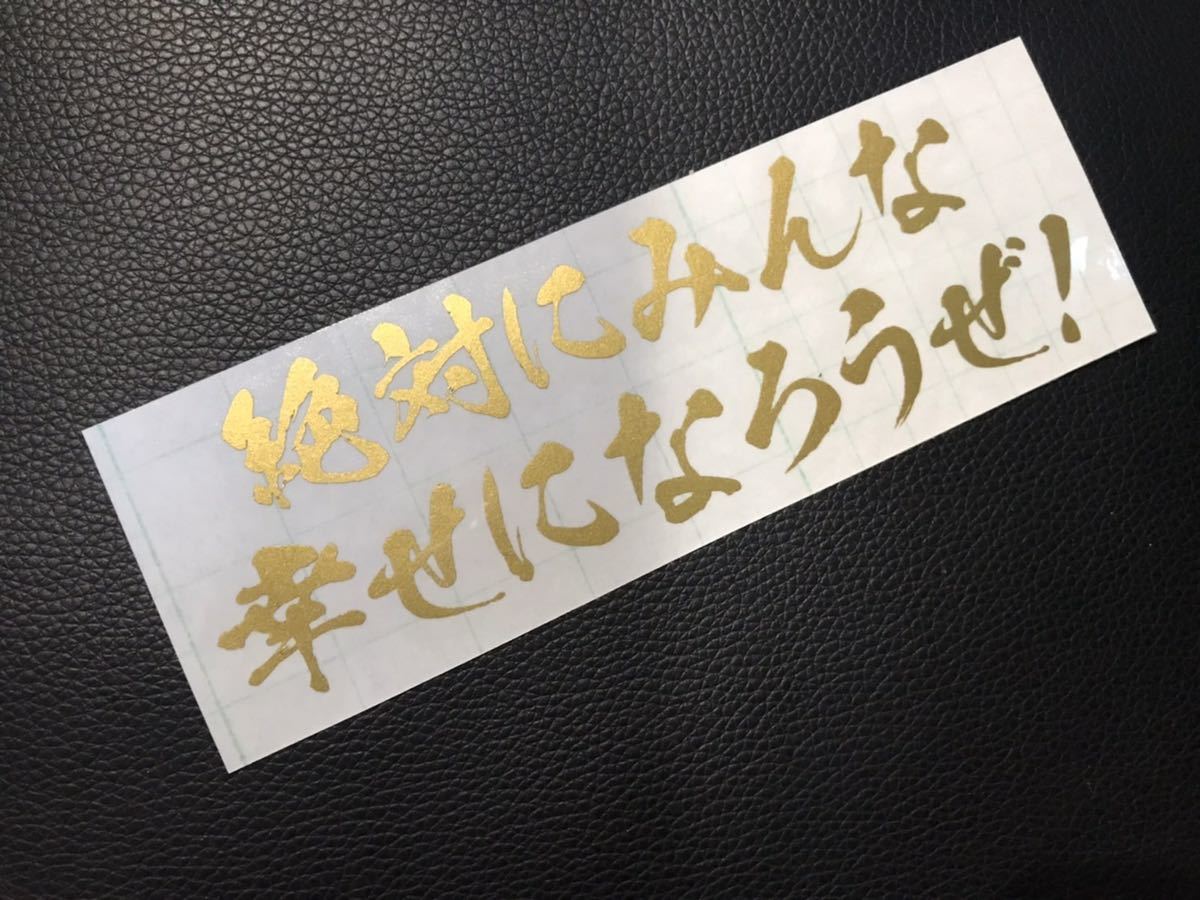 絶対にみんな
幸せになろうぜ!